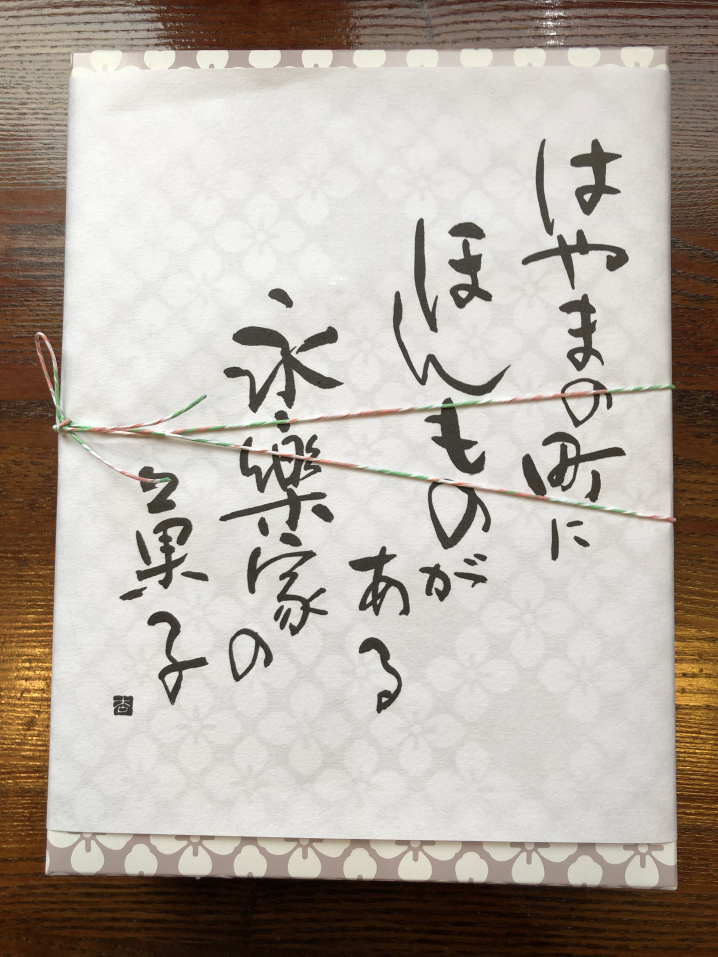 はやまの町に
ほんものが
ある
永樂家の
菓子
杏